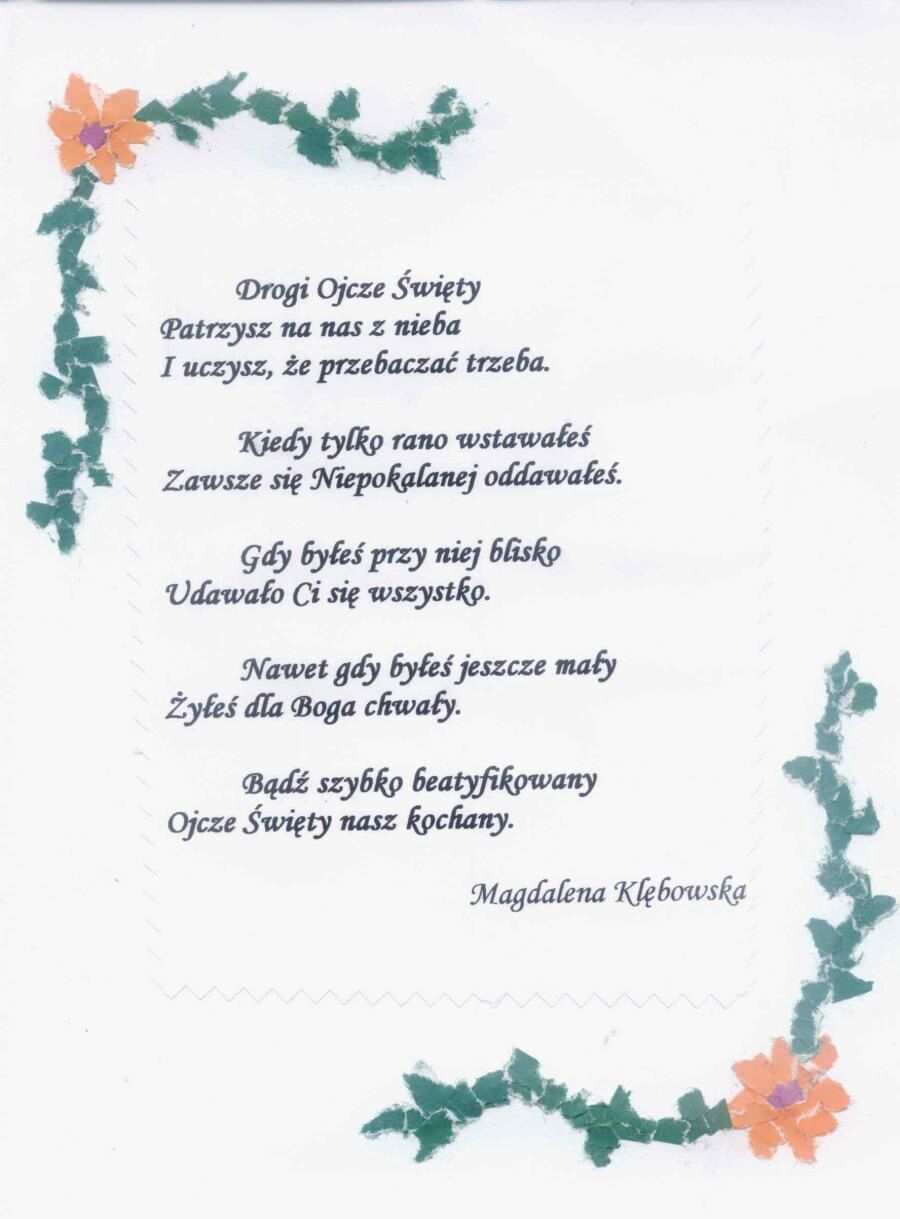 Drogi Ojcze Święty
Patrzysz na nas z nieba
I uczysz, że przebaczać trzeba.
Kiedy tylko rano wstawałeś
Zawsze się Niepokalanej oddawałeś.
Gdy byłeś przy niej blisko
Udawało Ci się wszystko.
Nawet gdy byłeś jeszcze mały
Żyłeś dla Boga chwały.
Bądź szybko beatyfikowany
Ojcze Święty nasz kochany.
Magdalena Klębowska